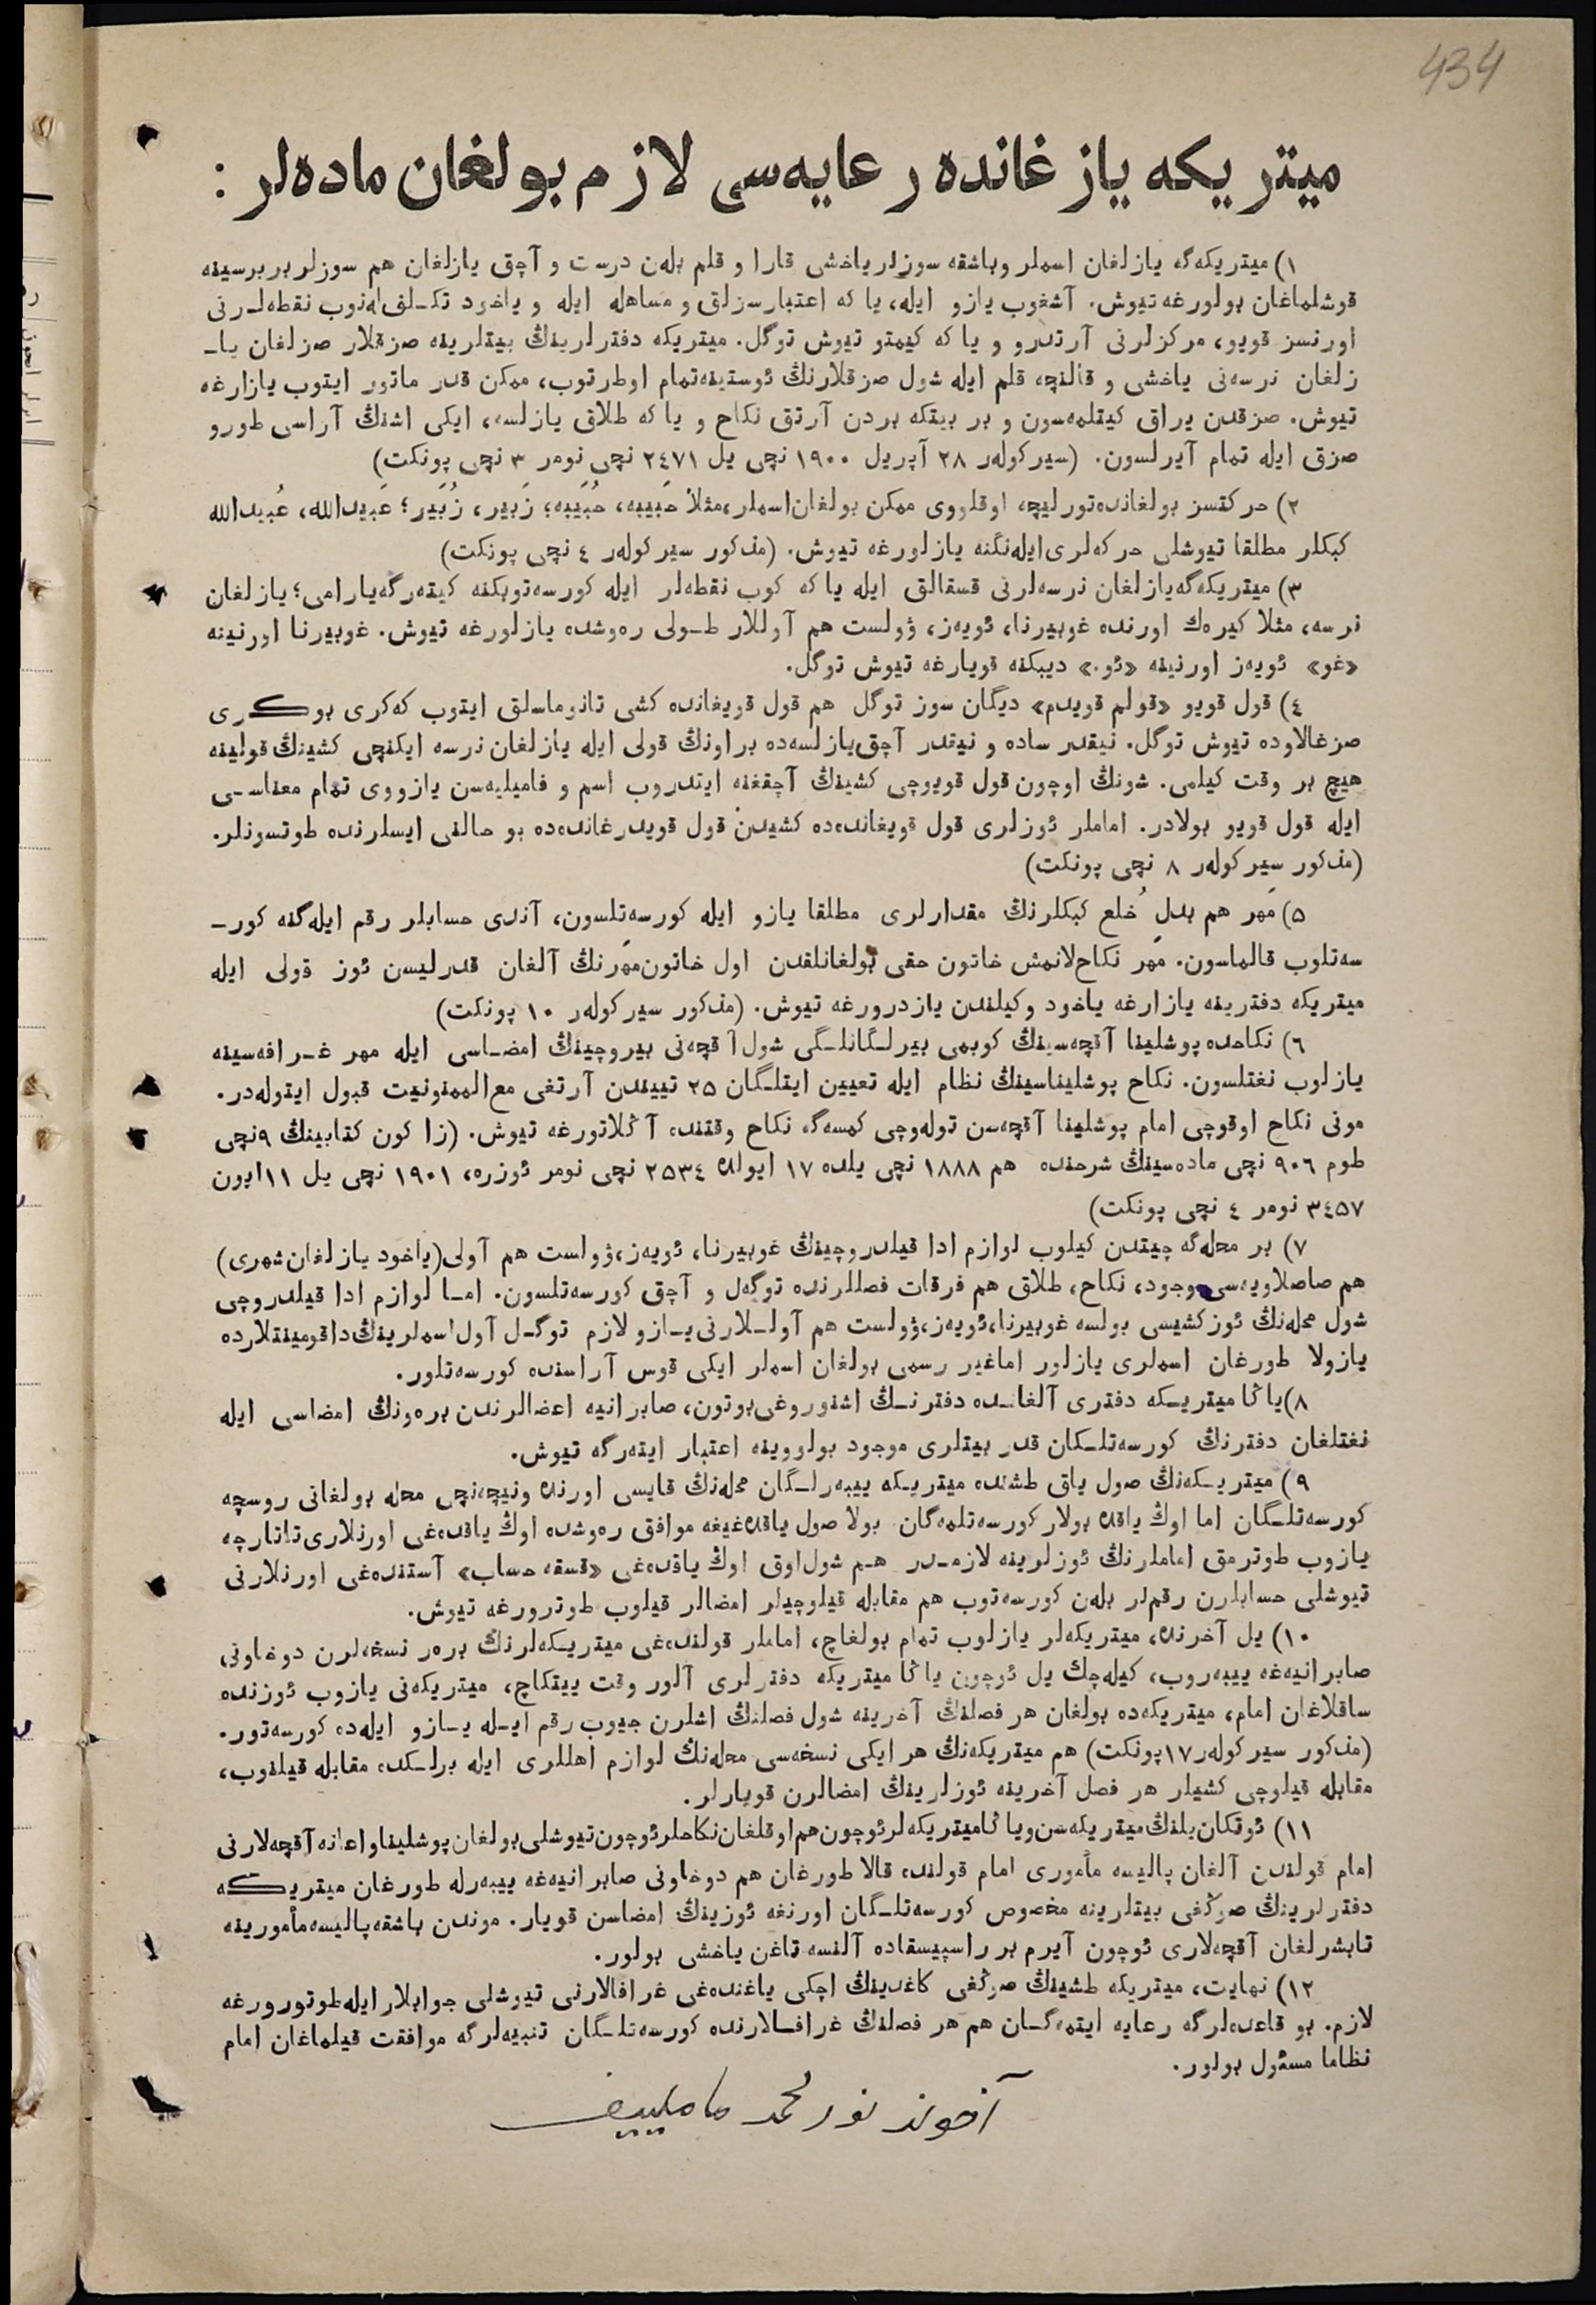 434
میتریکه یازغانده رعایه‌سی لازم بولغان ماده‌لر :
۱) میتریکه‌گه یازلغان اسملر وباشقه سوزلر یاخشی قارا و قلم بله‌ن درست و آچق یازلغان هم سوزلر بربرسینه
قوشلماغان بولورغه تیوش. آشغوب یازو ایله، یا که اعتبارسزلق و مساهله ایله و یاخود تکـلف له‌نوب نقطه‌لـرنی
اورنسز قویو، مرکزلرنی آرتدرو و یا که کیمتو تیوش توگل. میتریکه دفترلرینڭ بیتلرینه صزقلار صزلغان یا-
زلغان نرسه‌نی یاخشی و قالنچه قلم ایله شول صزقلارنڭ ئوستینه‌تمام اوطرتوب، ممکن قدر ماتور ایتوب یازارغه
تیوش. صزقدن یراق کیتلمه‌سون و بر بیتکه بردن آرتق نکاح و یا که طلاق یازلسه، ایکی اشنڭ آراسی طورو
صزق ایله تمام آیرلسون. (سیرکوله‌ر ۲۸ آپریل ۱۹۰۰ نچی یل ۲٤۷۱ نچی نومر ۳ نچی پونکت)
۲) حرکتسز بولغانده‌تورلیچه اوقلووی ممکن بولغان‌اسملر،مثلا حَبیبه، حُبَیبه؛ زَبیر، زُبَیر؛ عَبیدالله، عُبیدالله
کبکلر مطلقا تیوشلی حرکه‌لری‌ایله‌نگنه یازلورغه تیوش. (مذکور سیرکوله‌ر ٤ نچی پونکت)
۳) میتریکه‌گه‌یازلغان نرسه‌لرنی قسقالق ایله یا که کوب نقطه‌لر ایله کورسه‌توبکنه کیته‌رگه‌یارامی؛ یازلغان
نرسه، مثلا کیره‌ك اورنده غوبیرنا، ئویه‌ز، ۋولست هم آوللار طـولی ره‌وشده یازلورغه تیوش. غوبیرنا اورنینه
«غو» ئویه‌ز اورنینه «ئو.» دیبکنه قویارغه تیوش توگل.
٤) قول قویو «قولم قویدم» دیگان سوز توگل هم قول قویغانده کشی تانوماسلق ایتوب که‌کری بوکـری
صزغالاوده تیوش توگل. نیقدر ساده و نیقدر آچق‌یازلسه‌ده براونڭ قولی ایله یازلغان نرسه ایکنچی کشینڭ قولینه
هیچ بر وقت کیلمی. شونڭ اوچون قول قویوچی کشینڭ آچقغنه ایتدروب اسم و فامیلیه‌سن یازووی تمام معناسـی
ایله قول قویو بولادر. اماملر ئوزلری قول قویغانده‌ده کشیدن قول قویدرغانده‌ده بو حالنی ایسلرنده طوتسونلر.
(مذکور سیرکوله‌ر ۸ نچی پونکت)
۵) مَهر هم بدلِ خُلع کبکلرنڭ مقدارلری مطلقا یازو ایله کورسه‌تلسون، آندی حسابلر رقم ایله‌گنه کور-
سه‌تلوب قالماسون. مَهر نکاح‌لانمش خاتون حقی بولغانلقدن اول خاتون‌مَهرنڭ آلغان قدرلیسن ئوز قولی ایله
میتریکه دفترینه یازارغه یاخود وکیلندن یازدرورغه تیوش. (مذکور سیرکوله‌ر ۱۰ پونکت)
٦) نکاحده پوشلینا آقچه‌سینڭ کوبمی بیرلـگانلـگی شول‌آ قچه‌نی بیروچینڭ امضـاسی ایله مهر غـرافه‌سینه
یازلوب نغتلسون. نکاح پوشلیناسینڭ نظام ایله تعیین ایتلـگان ۲۵ تییندن آرتغی مع‌الممنونیت قبول ایتوله‌در.
مونی نکاح اوقوچی امام پوشلینا آقچه‌سن توله‌وچی کمسه‌گه نکاح وقتنده آڭلاتورغه تیوش. (زا کون کتابینڭ ۹نچی
طوم ۹۰٦ نچی ماده‌سینڭ شرحنده هم ۱۸۸۸ نچی یلده ۱۷ ایولده ۲۵۳٤ نچی نومر ئوزره، ۱۹۰۱ نچی یل ۱۱ایون
۳٤۵۷ نومر ٤ نچی پونکت)
۷) بر محله‌گه چیتدن کیلوب لوازم ادا قیلدروچینڭ غوبیرنا، ئویه‌ز،ۋولست هم آولی(یاخود یازلغان‌شهری)
هم صاصلاویه‌سی وجود، نکاح، طلاق هم فرقات فصللرنده توگه‌ل و آچق کورسه‌تلسون. امـا لوازم ادا قیلدروچی
شول محله‌نڭ ئوزکشیسی بولسه غوبیرنا،ئویه‌ز،ۋولست هم آولـلارنی‌یـازو لازم توگـل آول‌اسملرینڭ‌داقومینتلارده
یازولا طورغان اسملری یازلور اماغیر رسمی بولغان اسملر ایکی قوس آراسنده کورسه‌تلور.
۸)یاڭا میتریـکه دفتری آلغانـده دفترنـڭ اشنوروغی‌بوتون، صابرانیه اعضالرندن بره‌ونڭ امضاسی ایله
نغتلغان دفترنڭ کورسه‌تلـکان قدر بیتلری موجود بولووینه اعتبار ایته‌رگه تیوش.
۹) میتریـکه‌نڭ صول یاق طشنده میتریـکه ییبه‌رلـگان محله‌نڭ قایسی اورنده ونیچه‌نچی محله بولغانی روسچه
کورسه‌تلـگان اما اوڭ یاقده بولار کورسه‌تلمه‌گان بولا صول یاقده‌غیغه موافق ره‌وشده اوڭ یاقده‌غی اورنلاری‌تاتارچه
یازوب طوترمق اماملرنڭ ئوزلرینه لازمـدر هـم شول‌اوق اوڭ یاقده‌غی «قسقه حساب» آستنده‌غی اورنلارنی
تیوشلی حسابلرن رقم‌لر بله‌ن کورسه‌توب هم مقابله قیلوچیلر امضالر قیلوب طوترورغه تیوش.
۱۰) یل آخرنده، میتریکه‌لر یازلوب تمام بولغاچ، اماملر قولنده‌غی میتریـکه‌لرنڭ بره‌ر نسخه‌لرن دوخاونی
صابرانیه‌غه ییبه‌روب، کیله‌چك یل ئوچون یاڭا میتریکه دفترلری آلور وقت ییتکاچ، میتریکه‌نی یازوب ئوزنده
ساقلاغان امام، میتریکه‌ده بولغان هر فصلنڭ آخرینه شول فصلنڭ اشلرن جیوب رقم ایـله یـازو ایله‌ده کورسه‌تور.
(مذکور سیرکوله‌ر۱۷پونکت) هم میتریکه‌نڭ هر ایکی نسخه‌سی محله‌نڭ لوازم اهللری ایله برلـکده مقابله قیلنوب،
مقابله قیلوچی کشیلر هر فصل آخرینه ئوزلرینڭ امضالرن قویارلر.
۱۱) ئوتکان‌یلنڭ‌میتریکه‌سن‌ویاڭامیتریکه‌لرئوچون‌هم‌اوقلغان‌نکاحلرئوچون‌تیوشلی‌بولغان‌پوشلیناواعانه‌آقچه‌لارنی
امام قولندن آلغان پالیسه مأموری امام قولنده قالا طورغان هم دوخاونی صابرانیه‌غه ییبه‌رله طورغان میتریـکه
دفترلرینڭ صوڭغی بیتلرینه مخصوص کورسه‌تلـگان اورنغه ئوزینڭ امضاسن قویار. موندن باشقه‌پالیسه‌مأمورینه
تابشرلغان آقچه‌لاری ئوچون آیرم بر راسپیسقاده آلنسه تاغن یاخشی بولور.
۱۲) نهایت، میتریکه طشینڭ صوڭغی کاغدینڭ اچکی یاغنده‌غی غرافالارنی تیوشلی جوابلار ایله‌طوتورورغه
لازم. بو قاعده‌لرگه رعایه ایتمه‌گـان هم هر فصلنڭ غرافـالارنده کورسه‌تلـگان تنبیه‌لرگه موافقت قیلماغان امام
نظاما مسئول بولور.
آخوند نورمحمد ماملییف